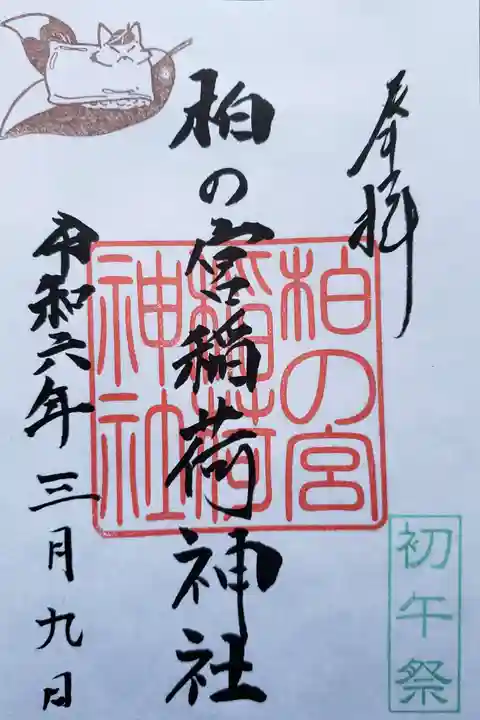 奉拝
柏の宮
稲荷
神社
柏の宮稲荷神社
令和六年三月九日
初午祭